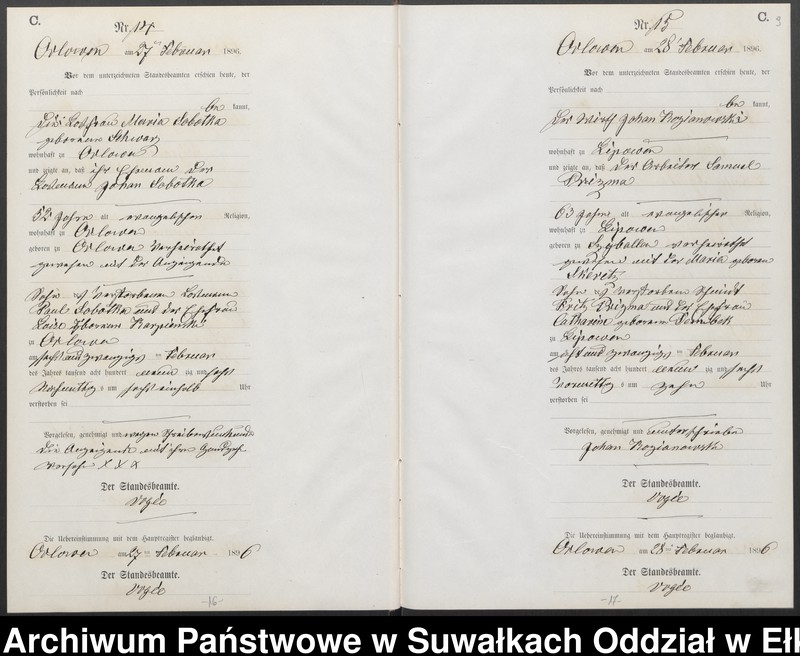 C.
Nr. 14
Orlowen am 27ten Februar 1896.
Vor dem unterzeichneten Standesbeamten erschien heute, der
Persönlichkeit nach
be kannt,
die Losfrau Maria Sobotka
geborene Schwarz
wohnhaft zu Orlowen
und zeigte an, daß ihr Ehemann der
Losmann Johan Sobotka
52 Jahre alt evangelischer Religion,
wohnhaft zu Orlowen
geboren zu Orlowen verheirathet
gewesen mit der Anzeigende
Sohn des verstorbenen Losmann
Paul Sobotka und der Ehefrau
geborenen
zu Orlowen
am sechs und zwanzigsten Februar
des Jahres tausend acht hundert neun zig und sechs
Nachmittags um sechs einhalb Uhr
verstorben sei
Vorgelesen, genehmigt und wegen Schreibensunkunde
die Anzeigende mit ihrem Handzeichen
versehen X X X
Der Standesbeamte.
Vogée
Die Uebereinstimmung mit dem Hauptregister beglaubigt.
Orlowen am 27ten Februar 1896
Der Standesbeamte.
Vogée
-16-
C. 9
Nr. 15
Orlowen am 28ten Februar 1896.
Vor dem unterzeichneten Standesbeamten erschien heute, der
Persönlichkeit nach
be kannt,
der Wirth Johan Rogianowski
wohnhaft zu Lipowen
und zeigte an, daß der Arbeiter Samuel
Prizma
63 Jahre alt evangelischer Religion,
wohnhaft zu Lipowen
geboren zu verheirathet
gewesen mit der Maria geborene
Sohn des verstorbenen Schmidt
Fritz Prizma und der Ehefrau
Catharine geborenen
zu Lipowen
am acht und zwanzigsten Februar
des Jahres tausend acht hundert neun zig und sechs
Vormittags um zehn Uhr
verstorben sei
Vorgelesen, genehmigt und unterschrieben
Johan Rogianowski
Der Standesbeamte.
Vogée
Die Uebereinstimmung mit dem Hauptregister beglaubigt.
Orlowen am 28ten Februar 1896
Der Standesbeamte.
Vogée
-17-
Archiwum Państwowe w Suwałkach Oddział w Ełk